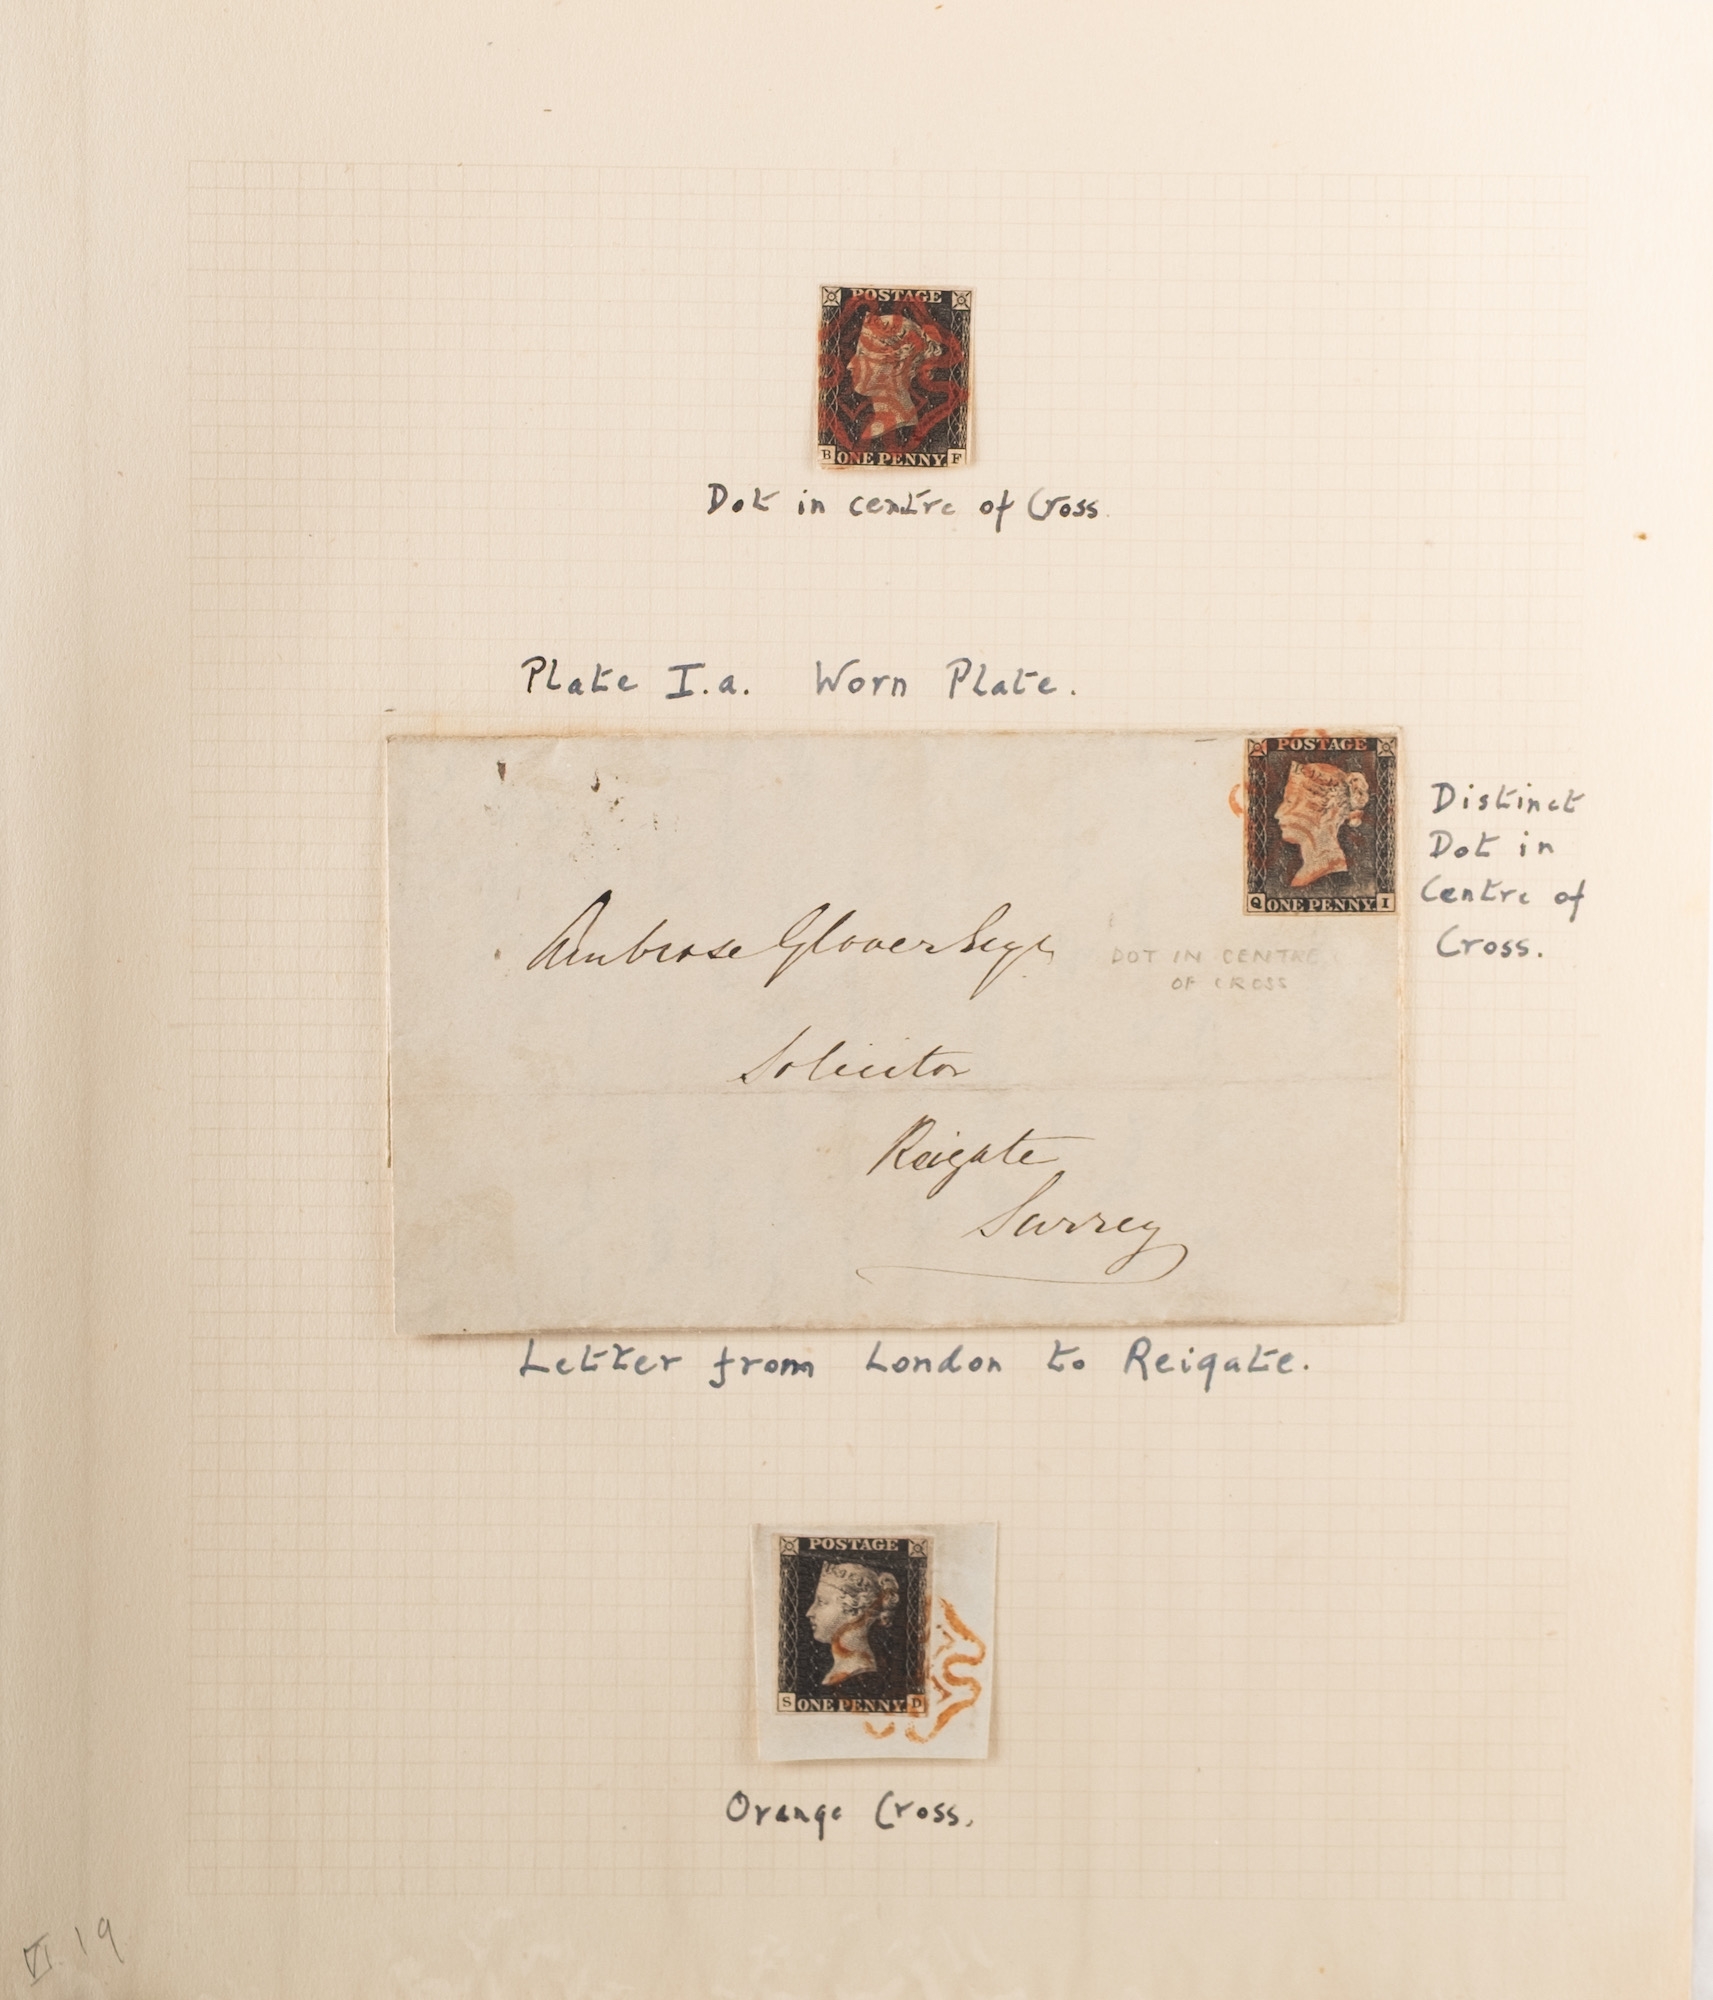 POSTAGE
B ONE PENNY. F
Dot in centre of Cross.
Plate I.a. Worn Plate.
POSTAGE
Q ONE PENNY. I
Distinct
Dot in
Centre of
Cross.
Ambrose Glover Esqr
DOT IN CENTRE
OF CROSS
Solicitor
Reigate
Surrey
Letter from London to Reigate.
POSTAGE
S ONE PENNY. D
Orange Cross.
VI. 19